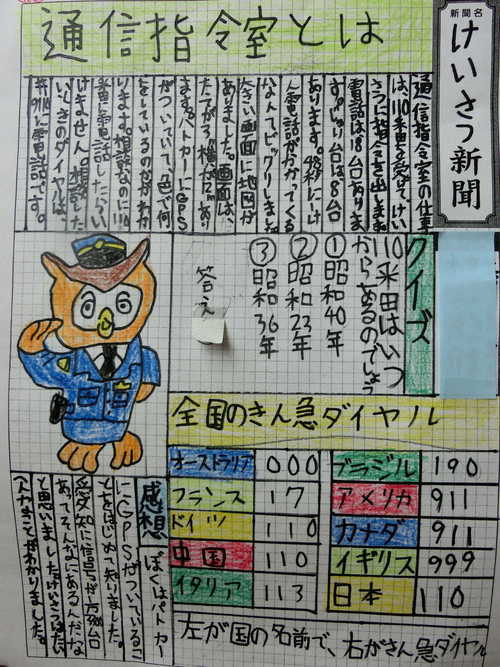 新聞名
けいさつ新聞
通信指令室とは
通信指令室の仕事
は、110番を受けて、けい
さつに指令を出します。
電話は18台ありま
す。じゅり台は8台
あります。48秒に1け
ん電話がかかってくる
なんてビックリしました。
大きい画面に地図が
ありました。画面は、
たてが3横が12mあり
ます。パトカーにGPS
がついていて、色で何
をしているのかがわか
ります。相談なのに110
番に電話したらい
けません。相談した
いときのダイヤルは、
#9110に電話です。
クイズ
110番はいつ
からあるのでしょう
①昭和40年
②昭和23年
③昭和36年
答え
全国のきん急ダイヤル
オーストラリア 000
フランス 17
ドイツ 110
中国 110
イタリア 113
ブラジル 190
アメリカ 911
カナダ 911
イギリス 999
日本 110
左が国の名前で、右がきん急ダイヤル
感想
ぼくはパトカー
にGPSがついているこ
とをはじめて知りました。
愛知に信号が 台
あってそんなにあるんだな
と思いました。けいさつはたい
へんなことがわかりました。